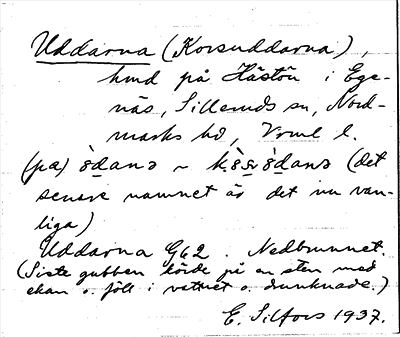 Uddarna (Korsuddarna),
hmd på Håstön i Ege-
näs, Silleruds sn, Nord-
marks hd, Vrml l.
(på) ò̀dana ~ (det
senare namnet är det nu van-
liga)
Uddarna G62. Nedbrunnet.
(Siste gubben körde på en sten med
ekan o. föll i vattnet o. drunknade.)
E. Silfors 1937.